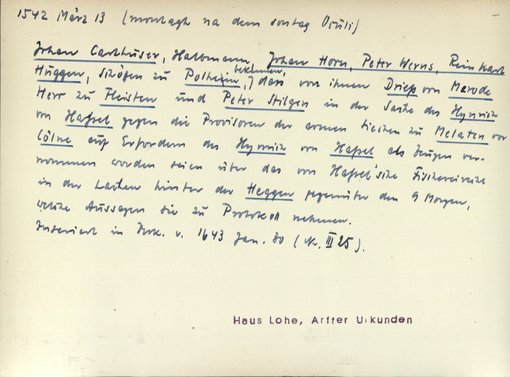 1542 März 13 (montagh na dem sontag Oculi)
Johan Carthuser, Halbmann, Johan Horn, Peter Werns, Reinhart
Huggen, Schöfen zu Polheim, bekennen, dass von ihnen Driess von Merode
Herr zu und Peter Stilgen in der Sache des Hynrich
von Hassel gegen die Provisoren der armen siechen zu Melaten vor
Cölne auf Erfordern des Hynrich von Hassel als Zeugen ver-
nommen worden seien über das von Hassel'sche
in der Lachen hinter der Heggen gegenüber den 9 Morgen,
welche Aussagen sie zu Protokoll nehmen.
Inseriert in Urk. v. 1643 Jan. 30 (Nr. III 25).
Haus Lohe, Arffer Urkunden